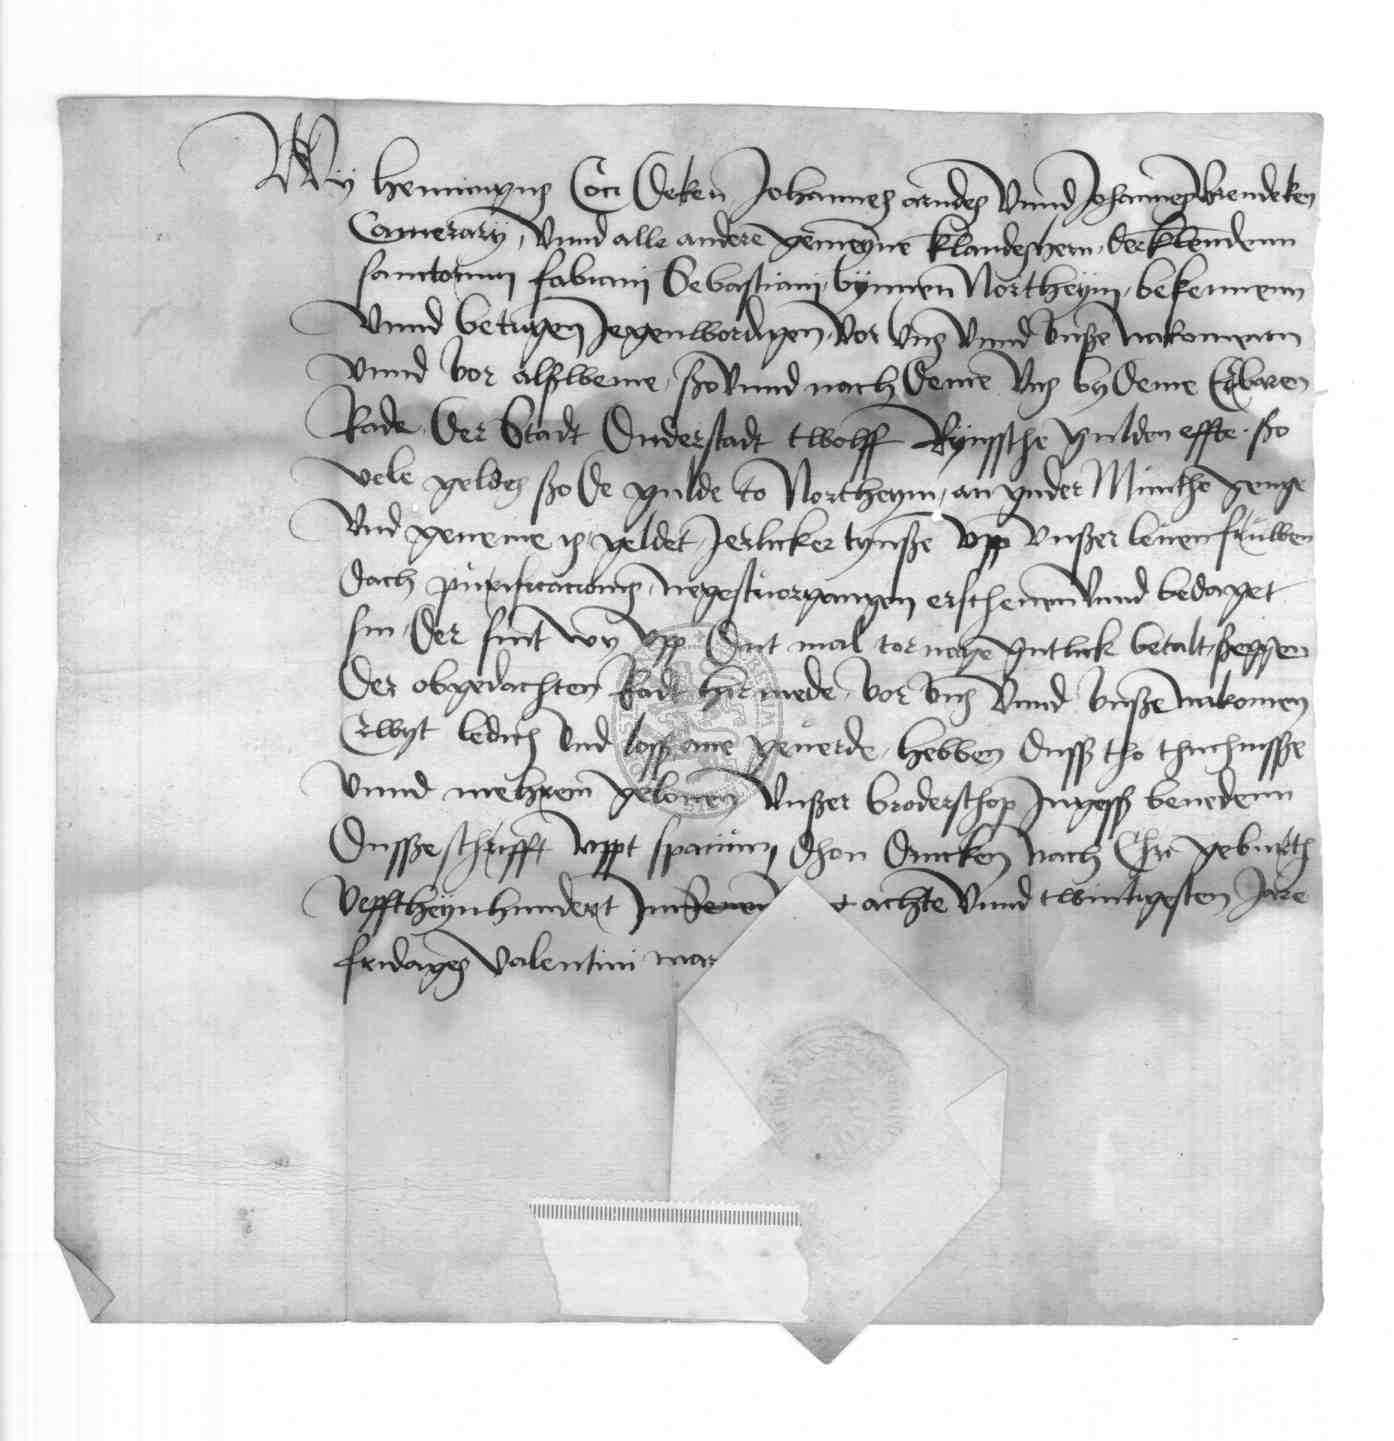 Wy henningus Coci Deken Johannes arndes Vnnd Johannes Brendeken
Camerarij, Vnnd alle andere gemeyne klandeshern der klenden
sanctorum fabiani Sebastiani bynnen Northeym bekennenn
Vnnd betugen Jegenwordigen vor Vns Vnnd vnße nakomenn
vnnd vor alßweme, ßo Vnnd nach deme Vns by deme Erbaren
Rade Der Stadt Duderstadt twolff Rynssche gulden effte ßo
vele geldes ßo De gulde to Northeym an gnder Munthe genge
Vnd geneme is geldet Jerlicker tynße Vpp vnßer leuen fruwen
dach purificationis negestuorgangen erschenen Vnnd bedaget
sin Der sint wy Vpp Dut mal tor noge gutlick betalt seggen
Der obgedachten Radt hir mede vor vns Vnnd vnße nakomen
Qwyt ledich Vnd loss ane geuerde hebben Duss tho thuchnisse
Vnnd mehrem gelouen Vnßer broderschop Ingess benedenn
Dusse schrifft Vppt spacium Dhon Drucken Nach Chri geburth
Vefftheynhundert Im achte Vnnd twintigesten Jare
fridages Valentini mar